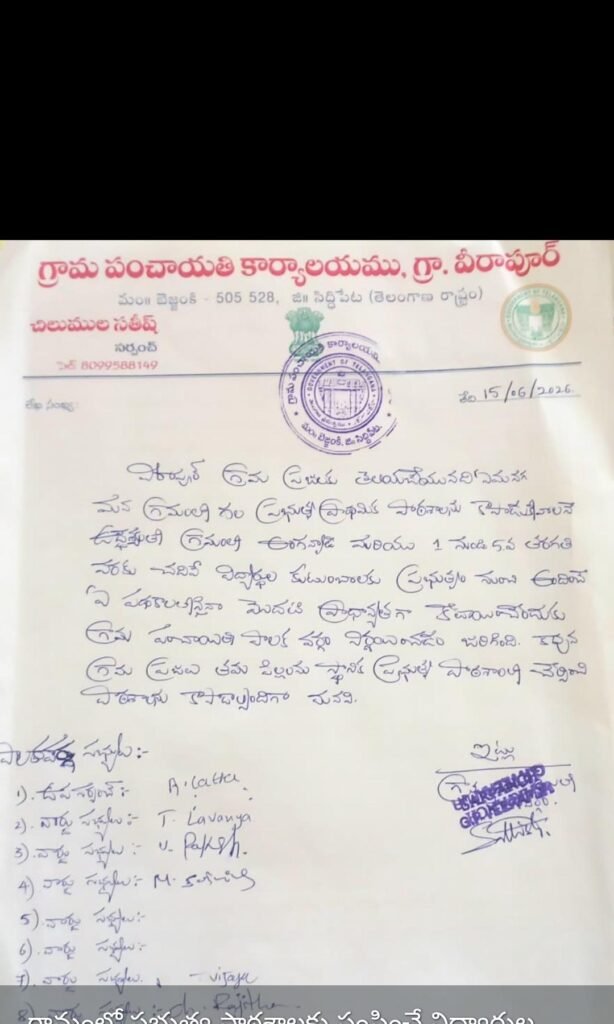 గ్రామ పంచాయతి కార్యాలయము, గ్రా. వీరాపూర్
మం॥ బెజ్జంకి - 505 528, జి॥ సిద్దిపేట (తెలంగాణ రాష్ట్రం)
చిలుముల సతీష్
సర్పంచ్
సెల్ 8099588149
గ్రామ పంచాయతి కార్యాలయం
GOVERNMENT OF TELANGANA
మం. బెజ్జంకి, జి. సిద్దిపేట.
లేఖ సంఖ్య:
తేది 15/06/2026
వీరాపూర్ గ్రామ ప్రజలకు తెలియచేయునది ఏమనగ
మన గ్రామంలో గల ప్రభుత్వ ప్రాథమిక పాఠశాలను కాపాడుకోవాలనే
ఉద్దేశ్యంతో గ్రామంలో అంగన్వాడి మరియు 1 నుండి 5వ తరగతి
వరకు చదివే విద్యార్థుల కుటుంబాలకు ప్రభుత్వం నుంచి అందించే
ఏ పథకాలలోనైనా మొదటి ప్రాధాన్యతగా కేటాయించేందుకు
గ్రామ పంచాయితి పాలక వర్గం నిర్ణయించడం జరిగింది. కావున
గ్రామ ప్రజలు తమ పిల్లలను స్థానిక ప్రభుత్వ పాఠశాలలో చేర్పించి
పాఠశాలను కాపాడాల్సిందిగా మనవి.
పాలకవర్గ సభ్యులు:-
ఇట్లు
1). ఉప సర్పంచ్:- Latha
2). వార్డు సభ్యులు:- T. Lavanya
3). వార్డు సభ్యులు:-
4) వార్డు సభ్యులు:- M.
5). వార్డు సభ్యులు:-
6). వార్డు సభ్యులు:-
7). వార్డు సభ్యులు. vijaya
8) వార్డు సభ్యులు:- Rajitha
గ్రామంలో ప్రభుత్వ పాఠశాలకు పంపించే విద్యార్థుల